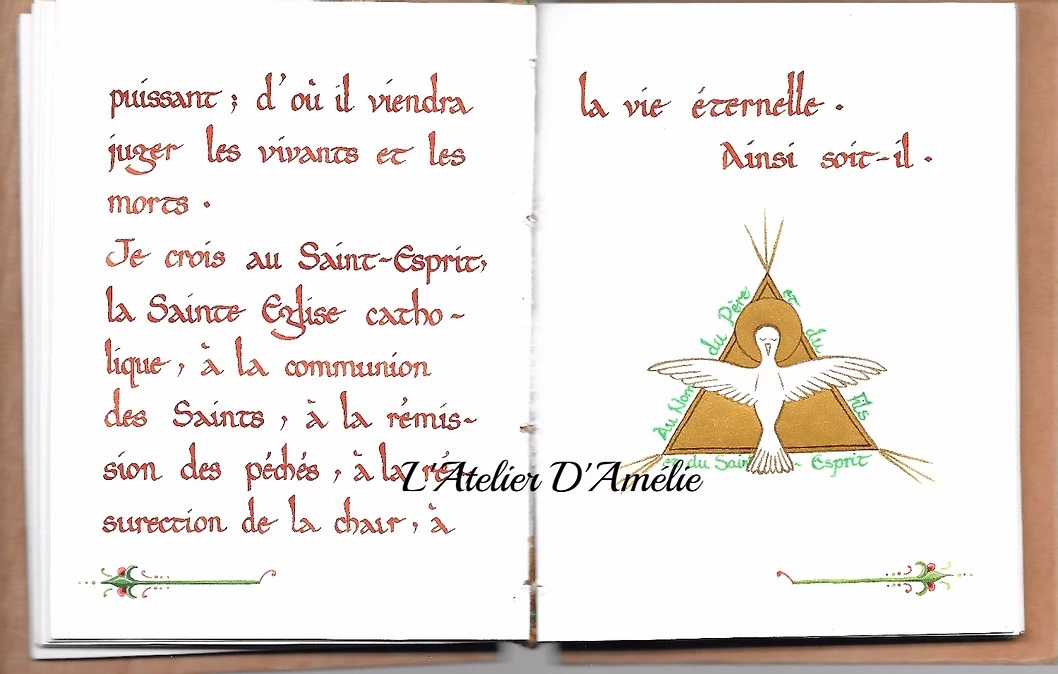 puissant ; d'où il viendra
juger les vivants et les
morts .
Je crois au Saint-Esprit,
la Sainte Eglise catho-
lique , à la communion
des Saints , à la rémis-
sion des péchés , à la ré-
surection de la chair , à
la vie éternelle .
Ainsi soit-il .
Au Nom du Père et du Fils
et du Saint - Esprit
L'Atelier D'Amélie